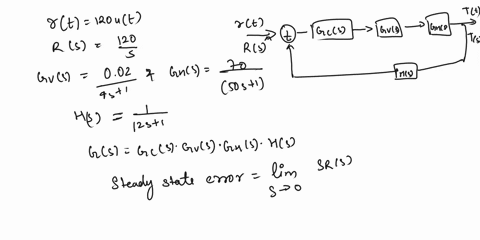 r(t) = 120u(t)
R(s) = 120/s
Gv(s) = 0.02/4s+1 & GH(s) = 70/(50s+1)
H(s) = 1/12s+1
G(s) = Gc(s)·Gv(s)·GH(s)·H(s)
Steady state error = lim s→0 SR(s)
r(t)
R(s)
t
Gc(s)
Gv(s)
GH(s)
T(s)
T(s)
H(s)